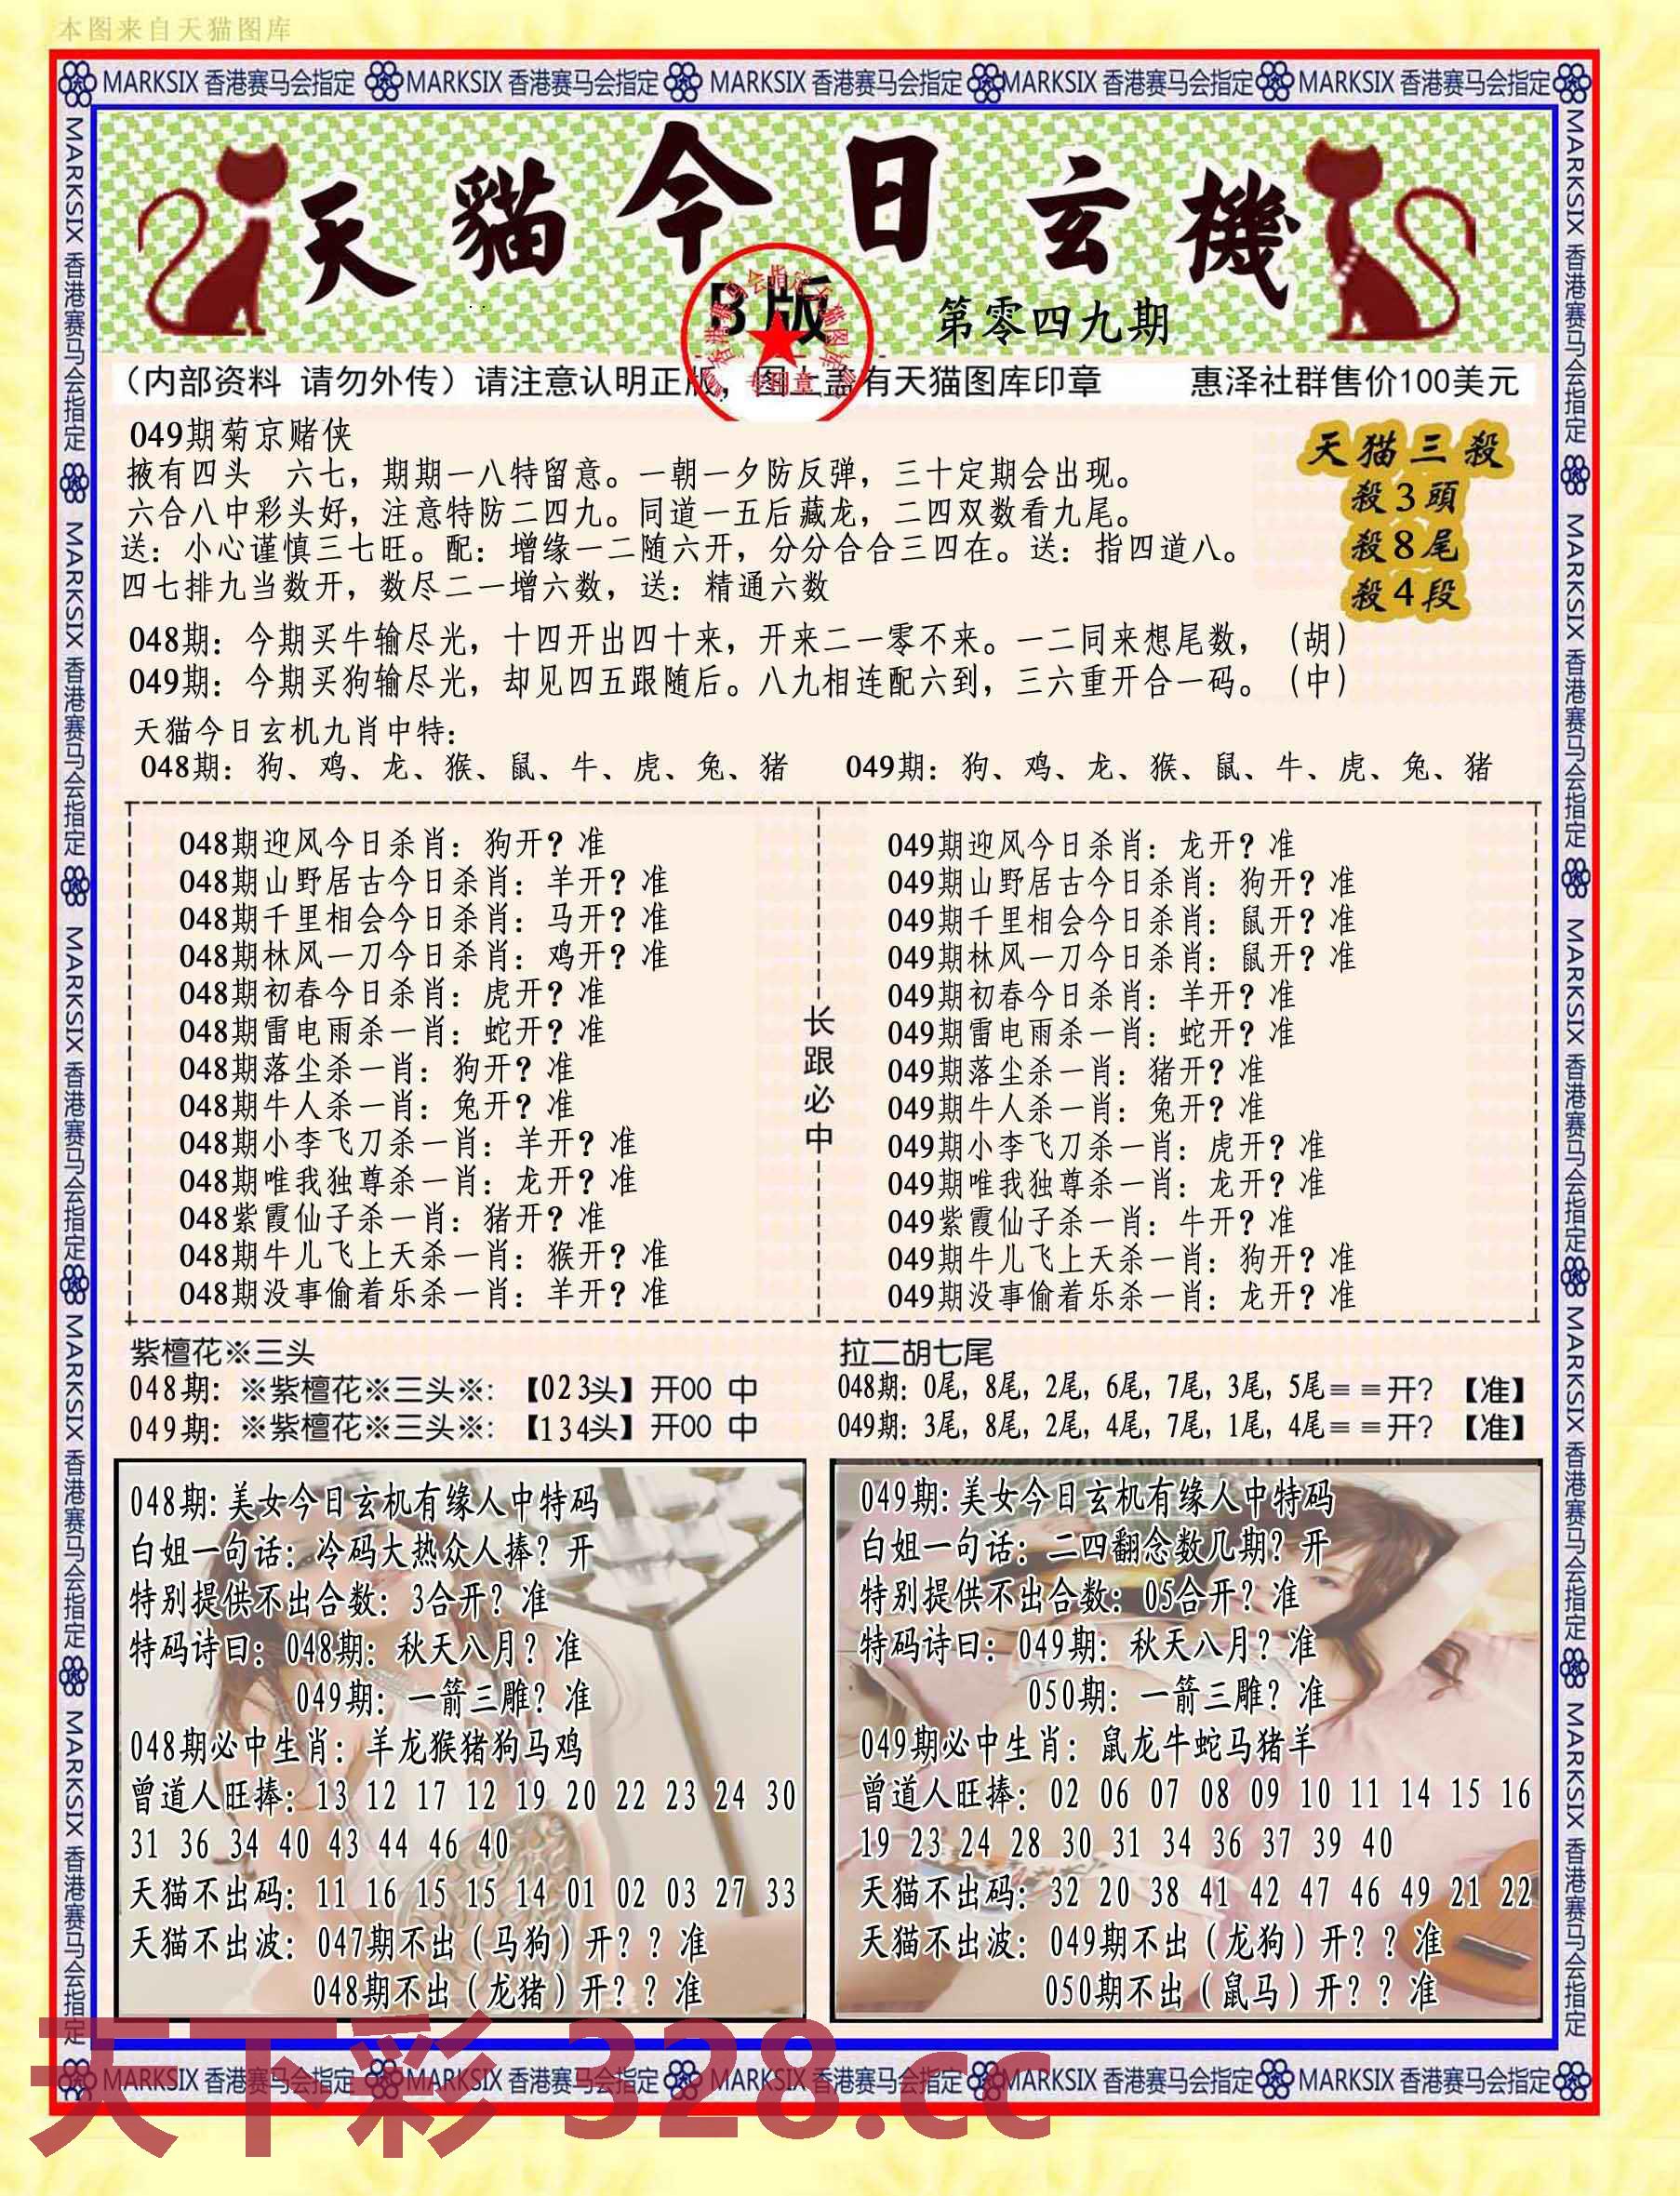 本图来自天猫图库
MARKSIX 香港赛马会指定 MARKSIX 香港赛马会指定 MARKSIX 香港赛马会指定 MARKSIX 香港赛马会指定 MARKSIX 香港赛马会指定
天貓今日玄機
B版
第零四九期
（内部资料 请勿外传）请注意认明正版，图上盖有天猫图库印章 惠泽社群售价100美元
专用章
049期菊京赌侠
掖有四头 六七，期期一八特留意。一朝一夕防反弹，三十定期会出现。
六合八中彩头好，注意特防二四九。同道一五后藏龙，二四双数看九尾。
送：小心谨慎三七旺。配：增缘一二随六开，分分合合三四在。送：指四道八。
四七排九当数开，数尽二一增六数，送：精通六数
天猫三殺
殺3頭
殺8尾
殺4段
048期：今期买牛输尽光，十四开出四十来，开来二一零不来。一二同来想尾数，（胡）
049期：今期买狗输尽光，却见四五跟随后。八九相连配六到，三六重开合一码。（中）
天猫今日玄机九肖中特：
048期：狗、鸡、龙、猴、鼠、牛、虎、兔、猪 049期：狗、鸡、龙、猴、鼠、牛、虎、兔、猪
048期迎风今日杀肖：狗开？准
048期山野居古今日杀肖：羊开？准
048期千里相会今日杀肖：马开？准
048期林风一刀今日杀肖：鸡开？准
048期初春今日杀肖：虎开？准
048期雷电雨杀一肖：蛇开？准
048期落尘杀一肖：狗开？准
048期牛人杀一肖：兔开？准
048期小李飞刀杀一肖：羊开？准
048期唯我独尊杀一肖：龙开？准
048紫霞仙子杀一肖：猪开？准
048期牛儿飞上天杀一肖：猴开？准
048期没事偷着乐杀一肖：羊开？准
长跟必中
049期迎风今日杀肖：龙开？准
049期山野居古今日杀肖：狗开？准
049期千里相会今日杀肖：鼠开？准
049期林风一刀今日杀肖：鼠开？准
049期初春今日杀肖：羊开？准
049期雷电雨杀一肖：蛇开？准
049期落尘杀一肖：猪开？准
049期牛人杀一肖：兔开？准
049期小李飞刀杀一肖：虎开？准
049期唯我独尊杀一肖：龙开？准
049紫霞仙子杀一肖：牛开？准
049期牛儿飞上天杀一肖：狗开？准
049期没事偷着乐杀一肖：龙开？准
紫檀花※三头
048期：※紫檀花※三头※：【023头】开00 中
049期：※紫檀花※三头※：【134头】开00 中
拉二胡七尾
048期：0尾，8尾，2尾，6尾，7尾，3尾，5尾＝＝开？【准】
049期：3尾，8尾，2尾，4尾，7尾，1尾，4尾＝＝开？【准】
048期：美女今日玄机有缘人中特码
白姐一句话：冷码大热众人捧？开
特别提供不出合数：3合开？准
特码诗曰：048期：秋天八月？准
049期：一箭三雕？准
048期必中生肖：羊龙猴猪狗马鸡
曾道人旺捧：13 12 17 12 19 20 22 23 24 30
31 36 34 40 43 44 46 40
天猫不出码：11 16 15 15 14 01 02 03 27 33
天猫不出波：047期不出（马狗）开？？准
048期不出（龙猪）开？？准
049期：美女今日玄机有缘人中特码
白姐一句话：二四翻念数几期？开
特别提供不出合数：05合开？准
特码诗曰：049期：秋天八月？准
050期：一箭三雕？准
049期必中生肖：鼠龙牛蛇马猪羊
曾道人旺捧：02 06 07 08 09 10 11 14 15 16
19 23 24 28 30 31 34 36 37 39 40
天猫不出码：32 20 38 41 42 47 46 49 21 22
天猫不出波：049期不出（龙狗）开？？准
050期不出（鼠马）开？？准
MARKSIX 香港赛马会指定 MARKSIX 香港赛马会指定 MARKSIX 香港赛马会指定 MARKSIX 香港赛马会指定 MARKSIX 香港赛马会指定
MARKSIX 香港赛马会指定 MARKSIX 香港赛马会指定 MARKSIX 香港赛马会指定 MARKSIX 香港赛马会指定 MARKSIX 香港赛马会指定
MARKSIX 香港赛马会指定 MARKSIX 香港赛马会指定 MARKSIX 香港赛马会指定 MARKSIX 香港赛马会指定 MARKSIX 香港赛马会指定
天下彩 328.cc